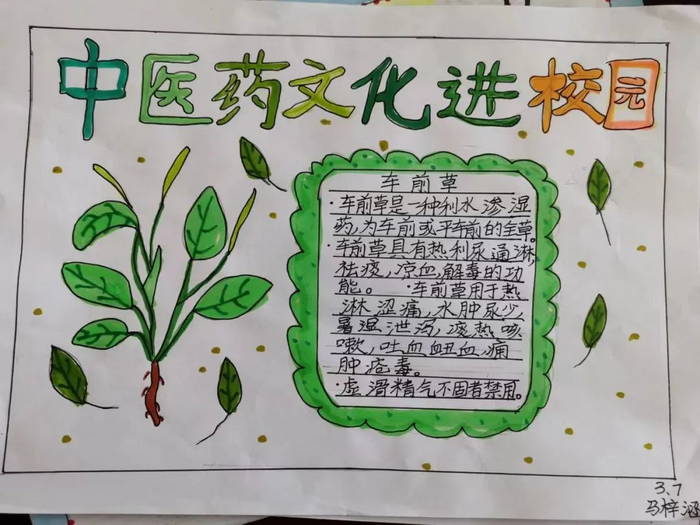 中医药文化进校园
车前草
·车前草是一种利水渗湿
药,为车前或平车前的全草。
·车前草具有热利尿通淋,
祛痰,凉血,解毒的功
能。 ·车前草用于热
淋涩痛,水肿尿少
暑湿泄泻,痰热咳
嗽,吐血衄血,痈
肿疮毒。
·虚滑精气不固者禁用。
3.7
马梓涵